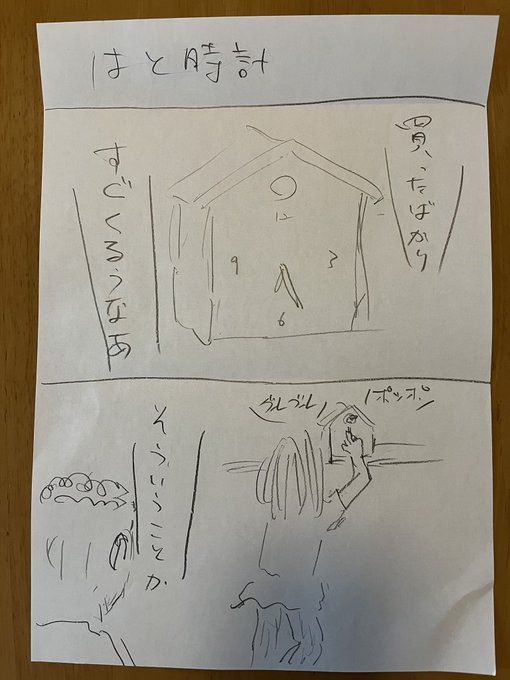 はと時計
買ったばかり
12
9
3
6
すごくくるうなあ
ポッポ
グルグル
そういうことか